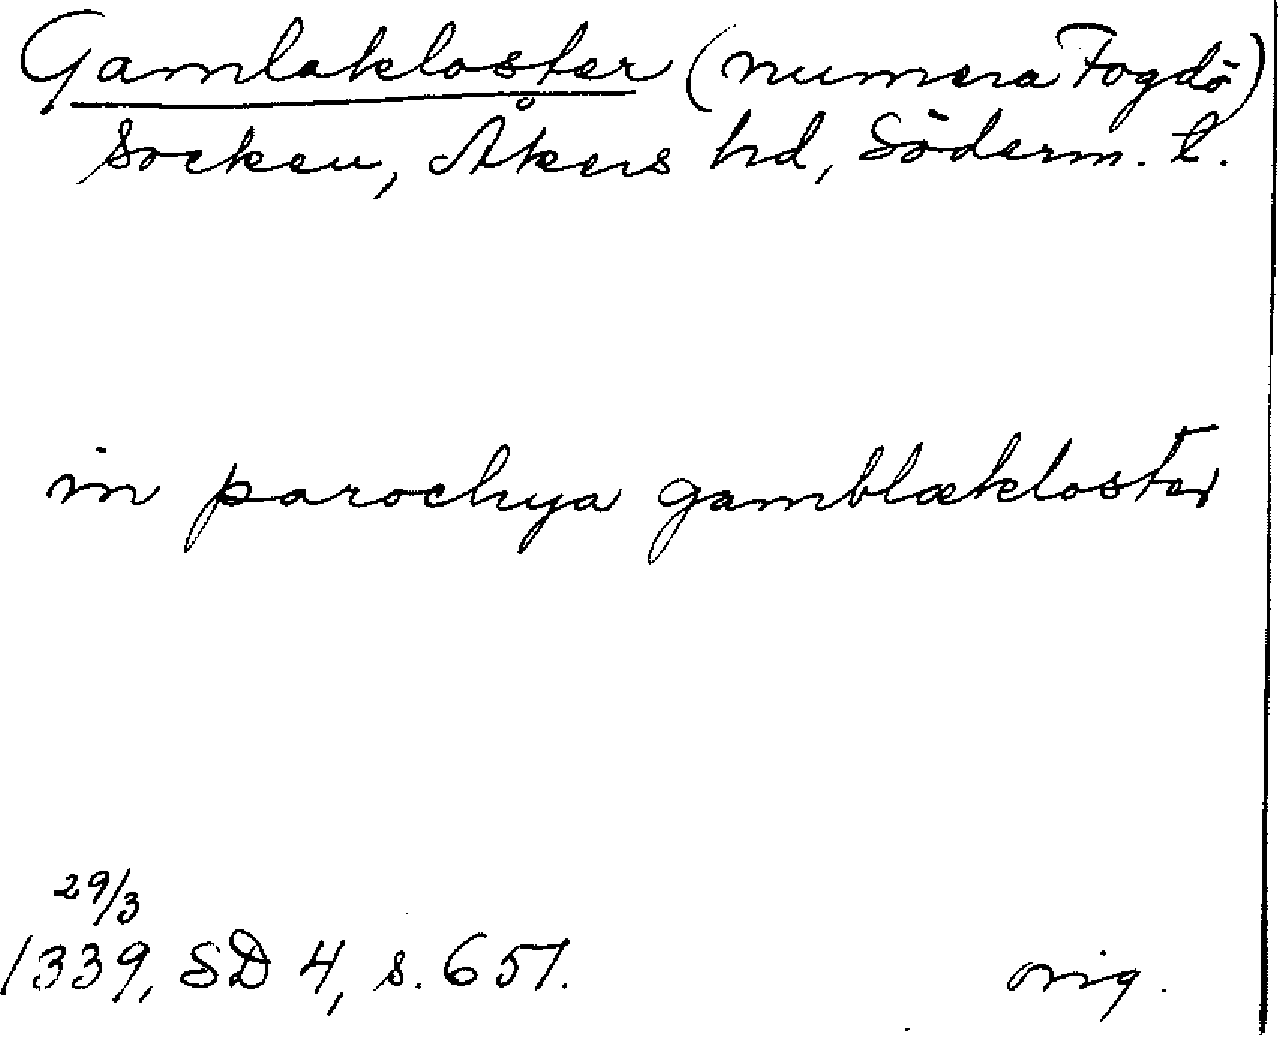 Gamlakloster (numera Fogdö)
Socken, Åkers hd, Söderm. l.
in parochya gamblækloster
29/3
1339, SD 4, s. 651.
orig.